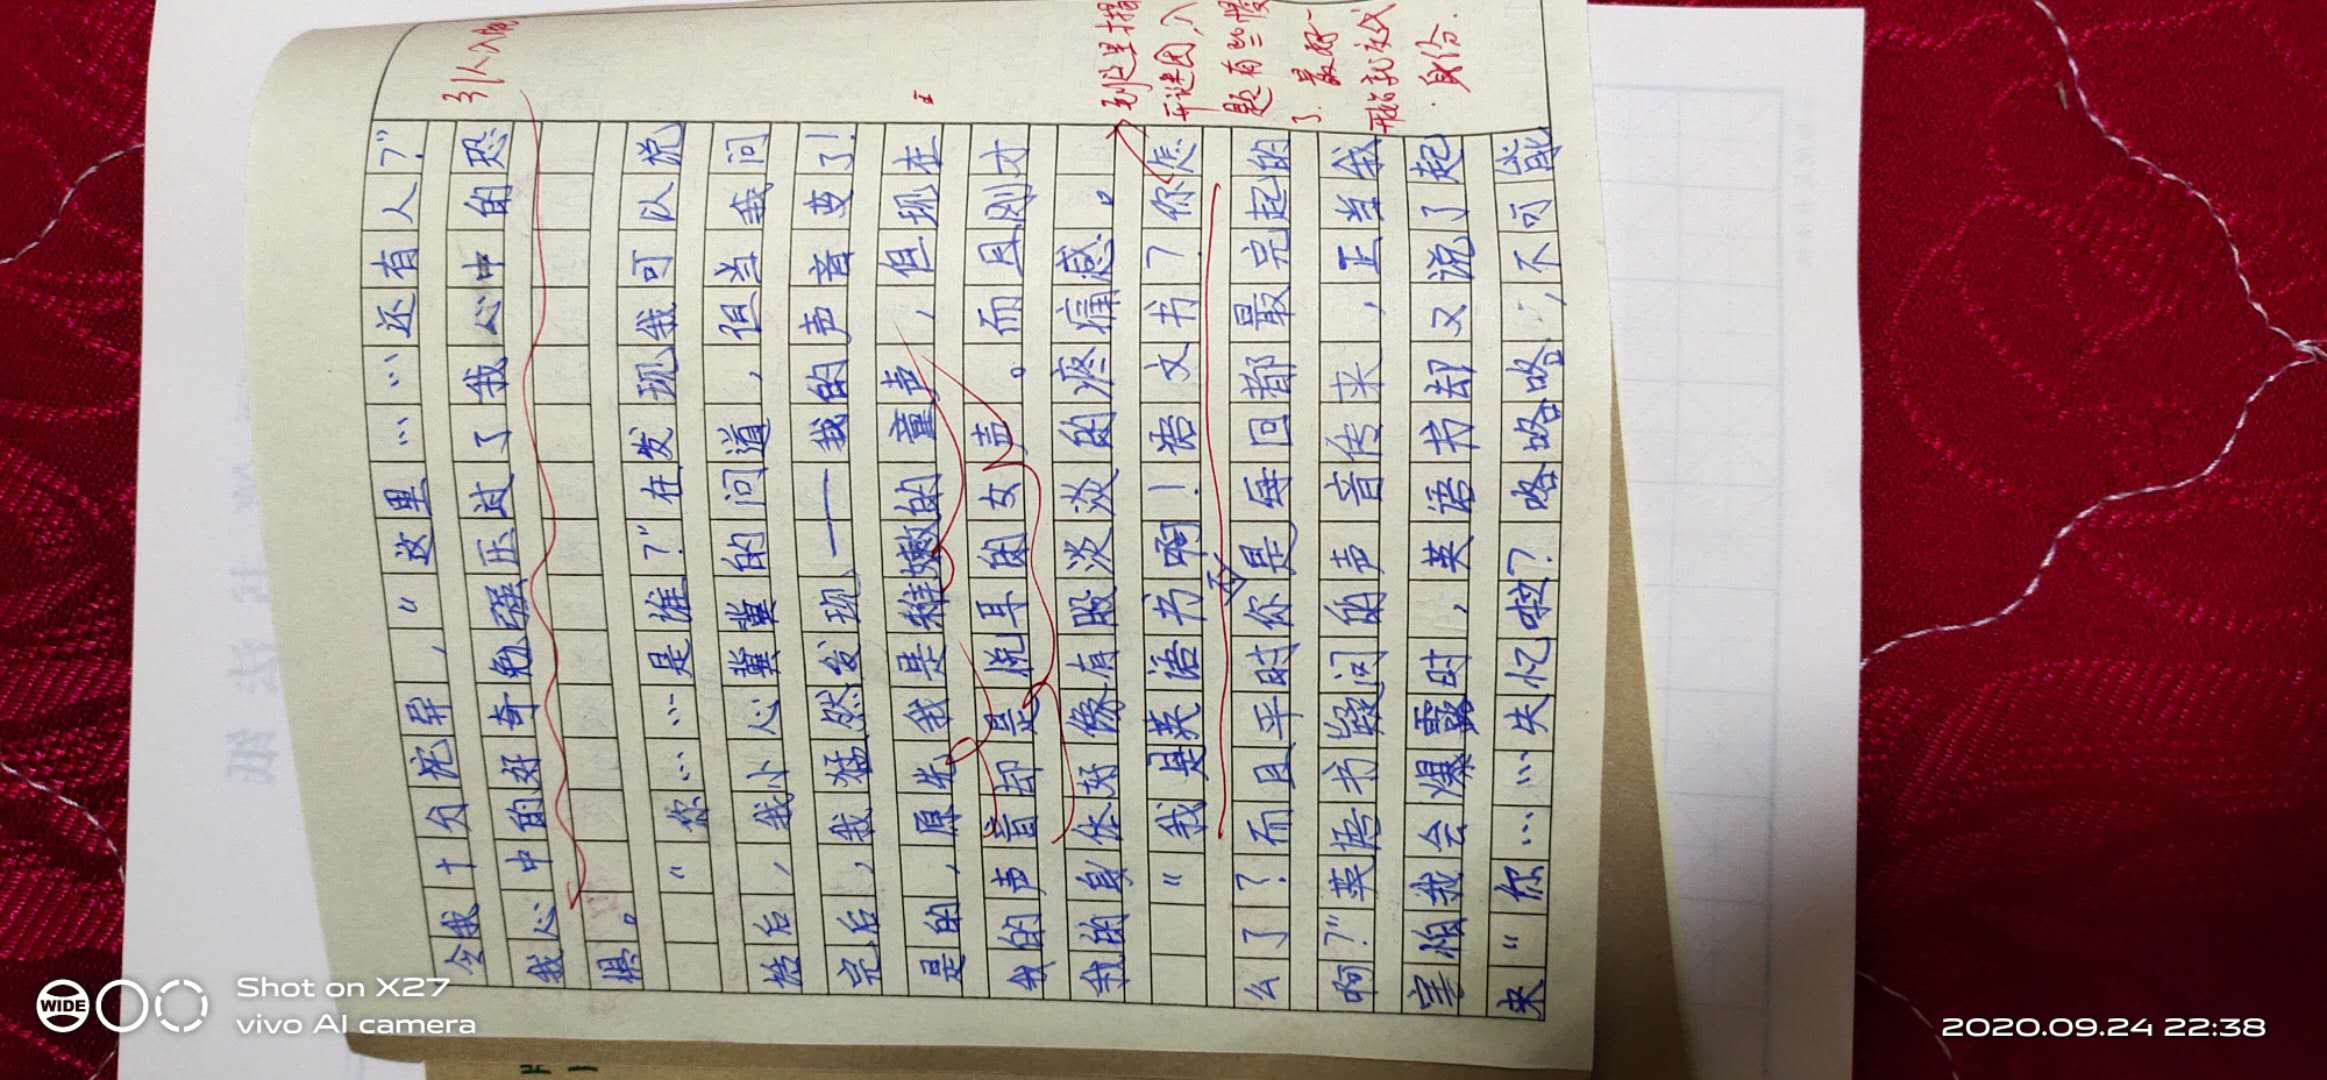 令我十分诧异，“这里……还有人？”
我心中的好奇勉强压过了我心中的恐
惧。
“你……是谁？”在发现我可以说
话后，我小心冀冀的问道，但当我问
完后，我猛然发现——我的声音变了！
是的，原先我是稚嫩的童声，但现在
我的声音却是悦耳的女声。而且刚才
我的身体好像有股淡淡的疼痛感。
“我是英语书啊！语文书？你怎
么了？而且平时你是每回都最完起的
啊？”英语书疑问的声音传来，正当我
害怕我会爆露时，英语书却又说了起
来“你……失忆啦？咯咯咯咯，不可能
引人入胜
到这里才揭
开谜团，入
题有些慢
了．最好一
开始就交代
身份．
Shot on X27
vivo AI camera
WIDE
2020.09.24 22:38